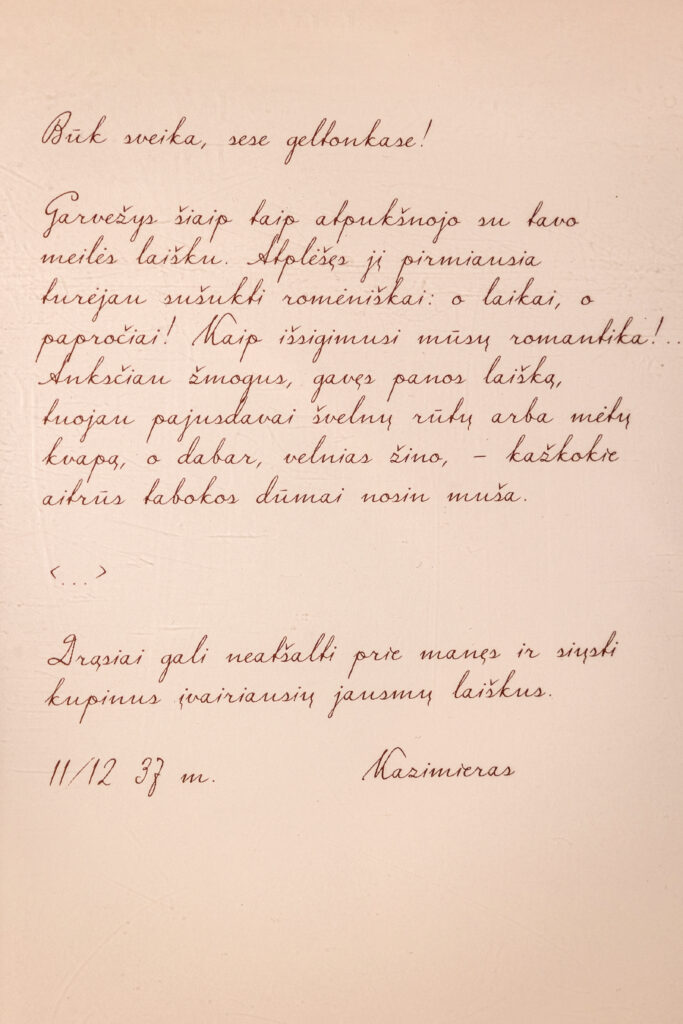 Būk sveika, sese geltonkase!
Garvežys šiaip taip atpukšnojo su tavo
meilės laišku. Atplėšęs jį pirmiausia
turėjau sušukti romėniškai: o laikai, o
papročiai! Kaip išsigimusi mūsų romantika!..
Anksčiau žmogus, gavęs panos laišką,
tuojau pajusdavai švelnų rūtų arba mėtų
kvapą, o dabar, velnias žino, – kažkokie
aitrūs tabokos dūmai nosin muša.
<...>
Drąsiai gali neatšalti prie manęs ir siųsti
kupinus įvairiausių jausmų laiškus.
11/12 37 m. Kazimieras